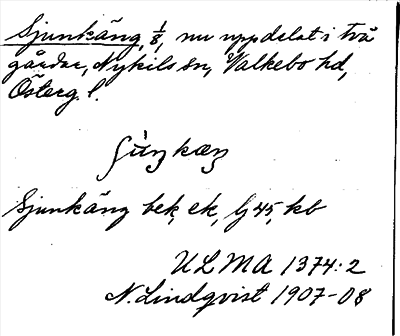 Sjunkäng, 1/8, nu uppdelat i två
gårdar, Nykils sn, Valkebo hd,
Österg. l.
Sjunkäng bek, ek, Gj 45, kb
ULMA 1374:2
N. Lindqvist 1907-08